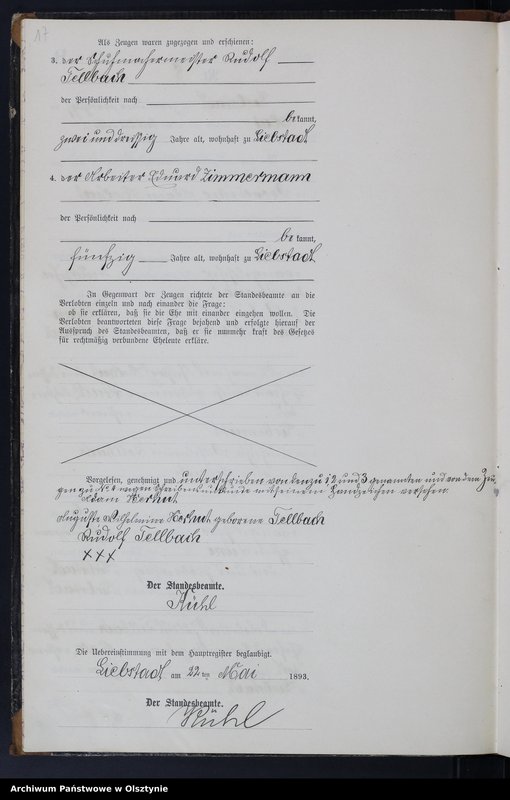 17
Als Zeugen waren zugezogen und erschienen:
3. der Schuhmachermeister Rudolf
Tellbach
der Persönlichkeit nach
bekannt,
zwei und dreissig Jahre alt, wohnhaft zu Liebstadt
4. der Arbeiter Eduard Zimmermann
der Persönlichkeit nach
bekannt,
fünfzig Jahre alt, wohnhaft zu Liebstadt
In Gegenwart der Zeugen richtete der Standesbeamte an die
Verlobten einzeln und nach einander die Frage:
ob sie erklären, daß sie die Ehe mit einander eingehen wollen. Die
Verlobten beantworteten diese Frage bejahend und erfolgte hierauf der
Ausspruch des Standesbeamten, daß er sie nunmehr kraft des Gesetzes
für rechtmäßig verbundene Eheleute erkläre.
Vorgelesen, genehmigt und unterschrieben von den zu 1 2 und 3 genannten und von dem Zeu-
gen zu No 4 wegen Schreibensunkunde mit seinem Handzeichen versehen
Adam
Auguste Wilhelmine geborene Tellbach
Rudolf Tellbach
XXX
Der Standesbeamte.
Kühl
Die Uebereinstimmung mit dem Hauptregister beglaubigt.
Liebstadt am 22 ten Mai 1893.
Der Standesbeamte.
Kühl
Archiwum Państwowe w Olsztynie